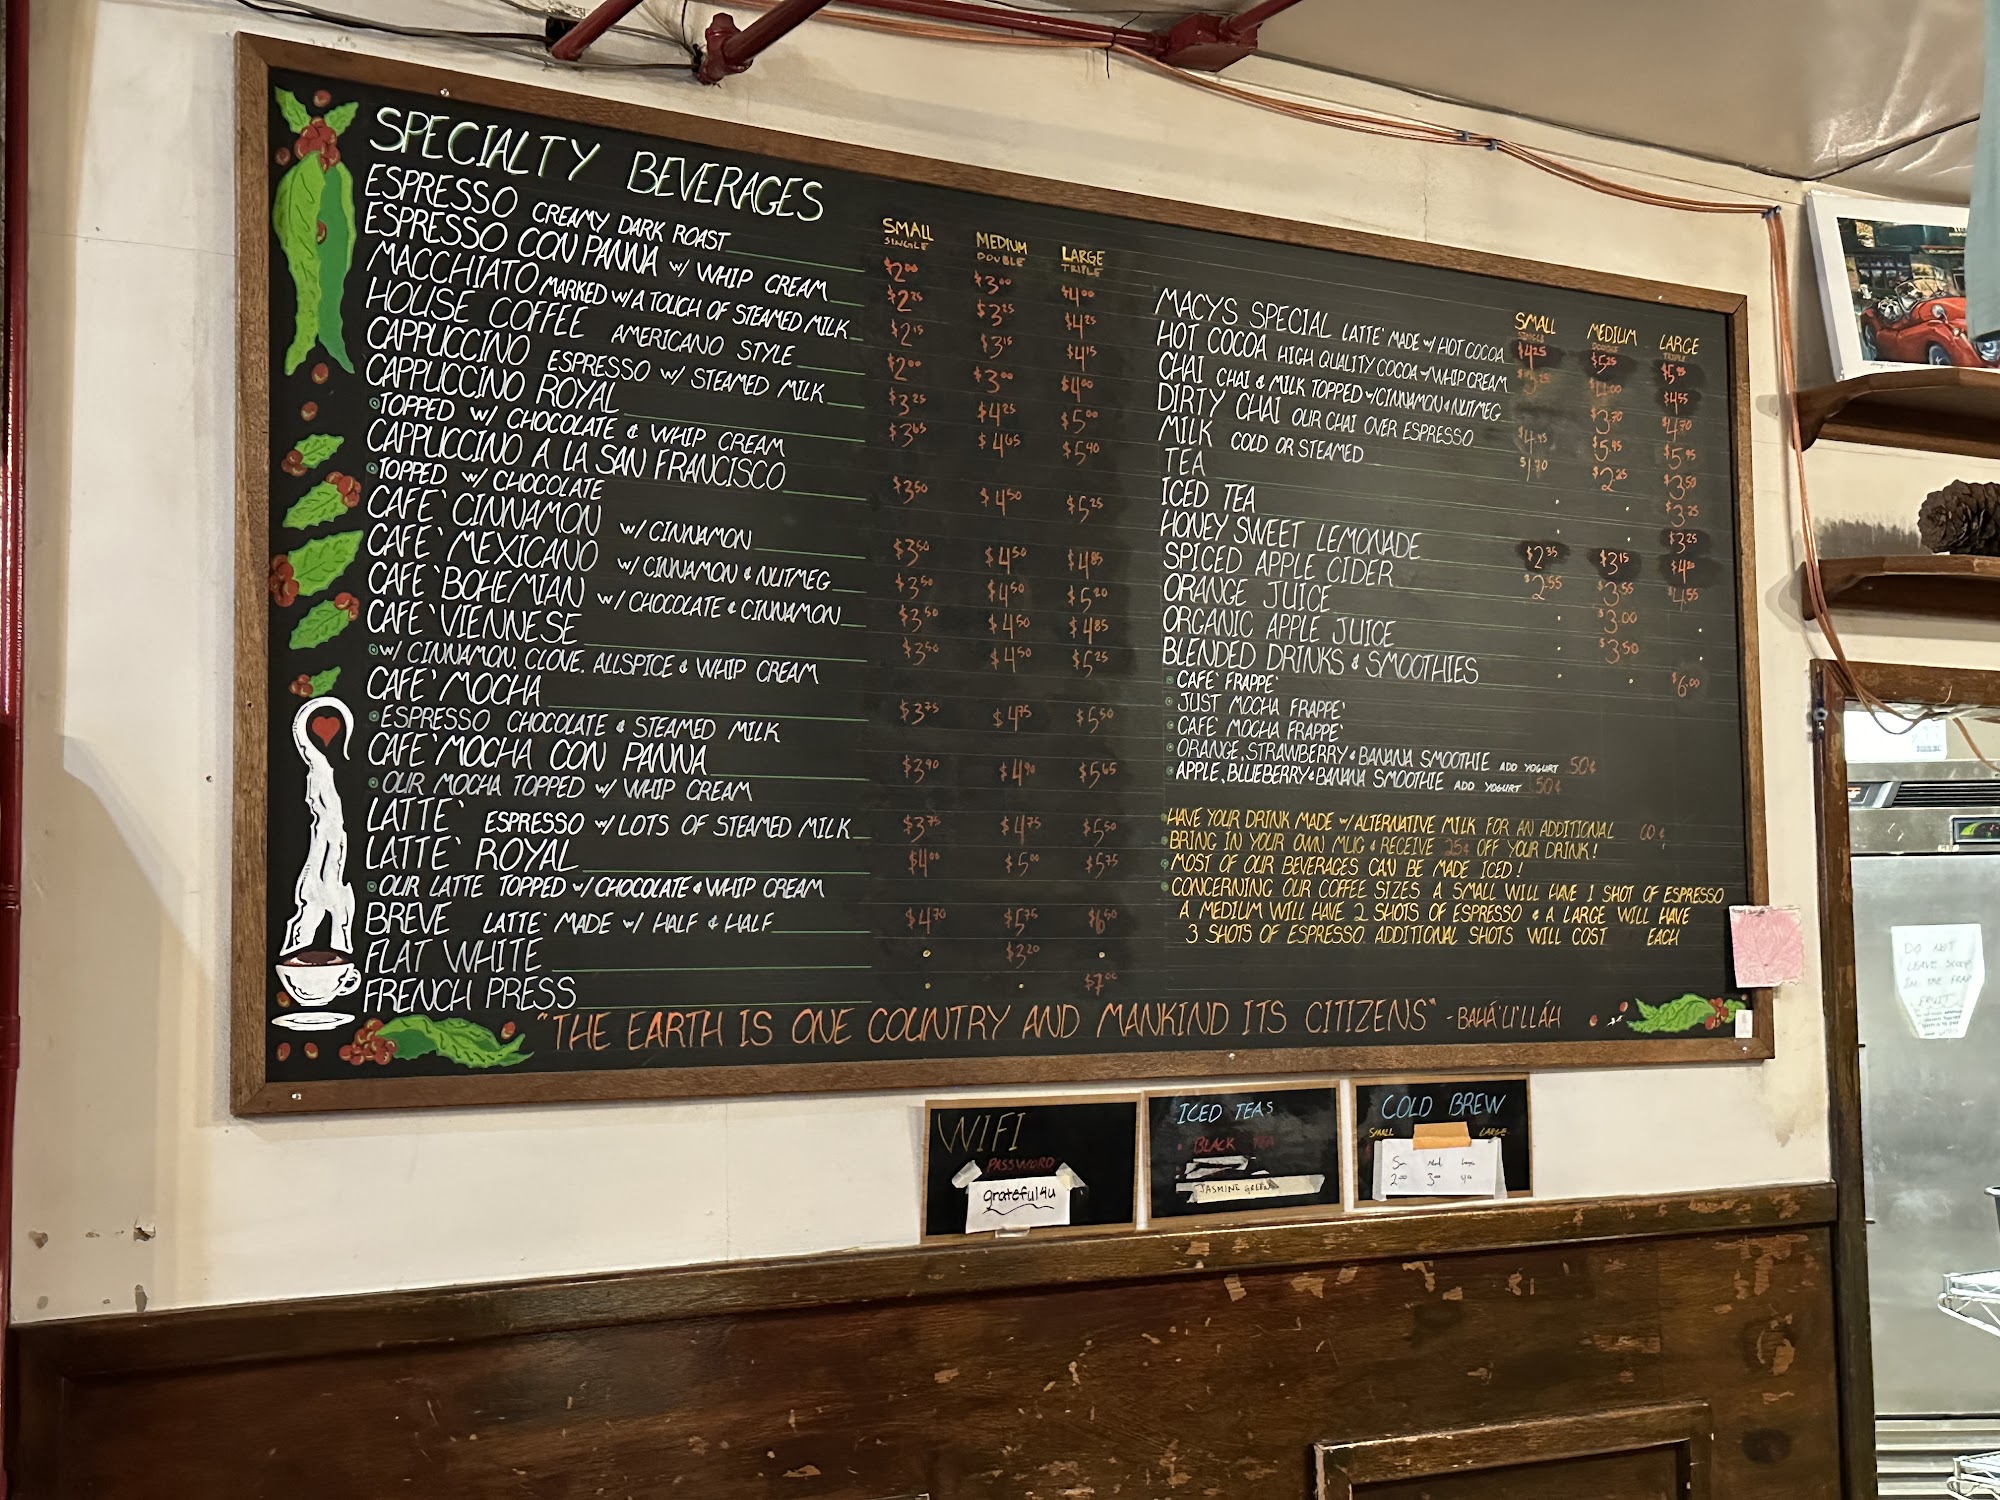 SPECIALTY BEVERAGES
SMALL MEDIUM LARGE
SINGLE DOUBLE TRIPLE
ESPRESSO CREAMY DARK ROAST $2.00 $3.00 $4.00
ESPRESSO CON PANNA w/ WHIP CREAM $2.25 $3.25 $4.25
MACCHIATO MARKED W/A TOUCH OF STEAMED MILK $2.15 $3.15 $4.15
HOUSE COFFEE AMERICANO STYLE $2.00 $3.00 $4.00
CAPPUCCINO ESPRESSO w/ STEAMED MILK $3.25 $4.25 $5.00
CAPPUCCINO ROYAL $3.65 $4.65 $5.40
TOPPED w/ CHOCOLATE & WHIP CREAM
CAPPUCCINO A LA SAN FRANCISCO $3.50 $4.50 $5.25
TOPPED w/ CHOCOLATE
CAFE` CINNAMON w/ CINNAMON $3.50 $4.50 $4.85
CAFE` MEXICANO w/ CINNAMON & NUTMEG $3.50 $4.50 $5.20
CAFE` BOHEMIAN w/ CHOCOLATE & CINNAMON $3.50 $4.50 $4.85
CAFE` VIENNESE $3.50 $4.50 $5.25
w/ CINNAMON, CLOVE, ALLSPICE & WHIP CREAM
CAFE` MOCHA $3.75 $4.75 $5.50
ESPRESSO CHOCOLATE & STEAMED MILK
CAFE` MOCHA CON PANNA $3.90 $4.90 $5.65
OUR MOCHA TOPPED w/ WHIP CREAM
LATTE` ESPRESSO w/ LOTS OF STEAMED MILK $3.75 $4.75 $5.50
LATTE` ROYAL $4.00 $5.00 $5.75
OUR LATTE TOPPED w/ CHOCOLATE & WHIP CREAM
BREVE LATTE` MADE w/ HALF & HALF $4.70 $5.75 $6.50
FLAT WHITE $3.20
FRENCH PRESS $7.00
SMALL MEDIUM LARGE
SINGLE DOUBLE TRIPLE
MACYS SPECIAL LATTE` MADE w/ HOT COCOA $4.25 $5.25 $5.95
HOT COCOA HIGH QUALITY COCOA w/WHIP CREAM $4.00 $4.55
CHAI CHAI & MILK TOPPED w/CINNAMON & NUTMEG $3.70 $4.70
DIRTY CHAI OUR CHAI OVER ESPRESSO $4.45 $5.45 $5.95
MILK COLD OR STEAMED $1.70 $2.25 $3.50
TEA $3.25
ICED TEA $3.25
HONEY SWEET LEMONADE $2.35 $3.15 $4.20
SPICED APPLE CIDER $2.55 $3.55 $4.55
ORANGE JUICE $3.00
ORGANIC APPLE JUICE $3.50
BLENDED DRINKS & SMOOTHIES $6.00
CAFE` FRAPPE`
JUST MOCHA FRAPPE`
CAFE` MOCHA FRAPPE`
ORANGE, STRAWBERRY & BANANA SMOOTHIE ADD YOGURT 50¢
APPLE, BLUEBERRY & BANANA SMOOTHIE ADD YOGURT 50¢
HAVE YOUR DRINK MADE w/ ALTERNATIVE MILK FOR AN ADDITIONAL
BRING IN YOUR OWN MUG & RECEIVE 25¢ OFF YOUR DRINK!
MOST OF OUR BEVERAGES CAN BE MADE ICED!
CONCERNING OUR COFFEE SIZES A SMALL WILL HAVE 1 SHOT OF ESPRESSO
A MEDIUM WILL HAVE 2 SHOTS OF ESPRESSO & A LARGE WILL HAVE
3 SHOTS OF ESPRESSO. ADDITIONAL SHOTS WILL COST EACH
"THE EARTH IS ONE COUNTRY AND MANKIND ITS CITIZENS" - BAHÁ'U'LLÁH
WIFI
PASSWORD
grateful4u
ICED TEAS
BLACK TEA
JASMINE GREEN
COLD BREW
SMALL LARGE
Sm Med Large
2.00 3.00
DO NOT
LEAVE SCOOP
IN THE
FRUIT